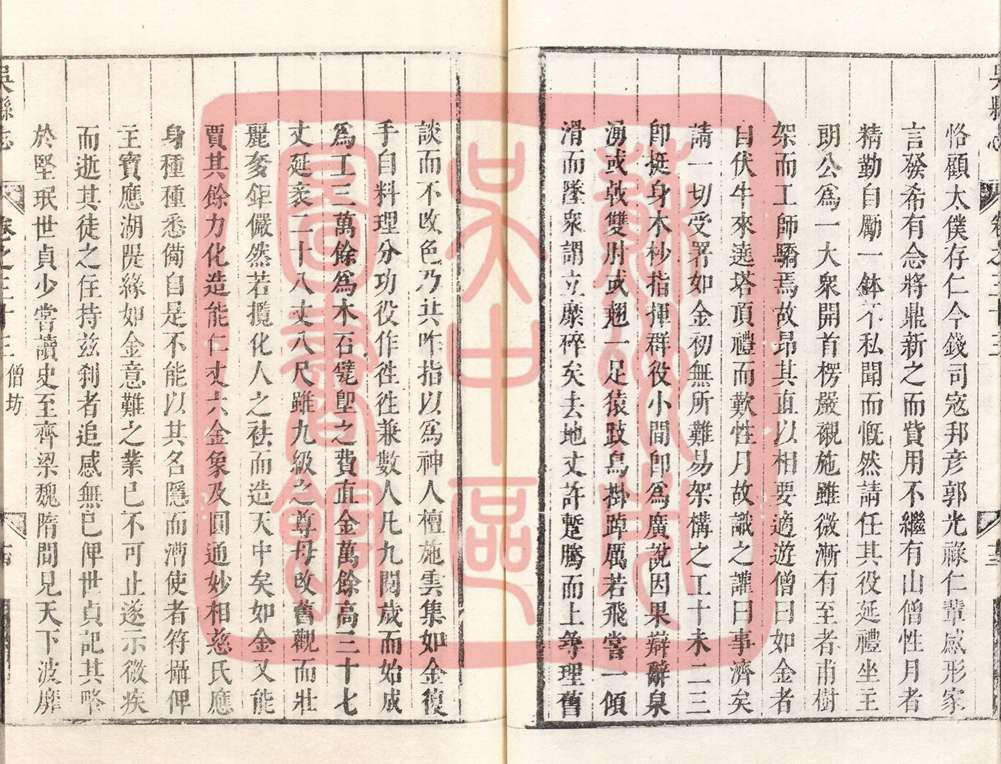 恪顧太僕存仁今錢司寇邦彥郭光祿仁輩感形家
言發希有念將鼎新之而費用不繼有山僧性月者
精勤自勵一鉢不私聞而慨然請任其役延禮坐主
朗公爲一大衆開首楞嚴襯施雖微漸有至者甫樹
架而工師驕焉故昂其直以相要適遊僧曰如金者
自伏牛來遶塔頂禮而歎性月故識之讙曰事濟矣
請一切受署如金初無所難易架構之工十未二三
卽挺身木杪指揮群役小間卽爲廣說因果辯辭泉
湧或攲雙肘或翹一足猿跂鳥掛踔厲若飛嘗一傾
滑而墜衆謂立糜碎矣去地丈許蹔騰而上等理舊
談而不改色乃共咋指以爲神人檀施雲集如金復
手自料理分功役作徃徃兼數人凡九閱歲而始成
爲工三萬餘爲木石甓堲之費直金萬餘高三十七
丈延袤二十八丈八尺雖九級之尊毋改舊觀而壯
麗夌鉅儼然若攬化人之袪而造天中矣如金又能
賈其餘力化造能仁丈六金象及圓通妙相慈氏應
身種種悉備自是不能以其名隱而漕使者符攝俾
主寶應湖隄緣如金意難之業已不可止遂示微疾
而逝其徒之住持玆刹者追感無已俾世貞記其略
於堅珉世貞少嘗讀史至齊梁魏隋間見天下波靡
吳縣志
卷之三十三
僧坊
吳縣志
卷之三十三
蘇州市
吳中區
圖書館